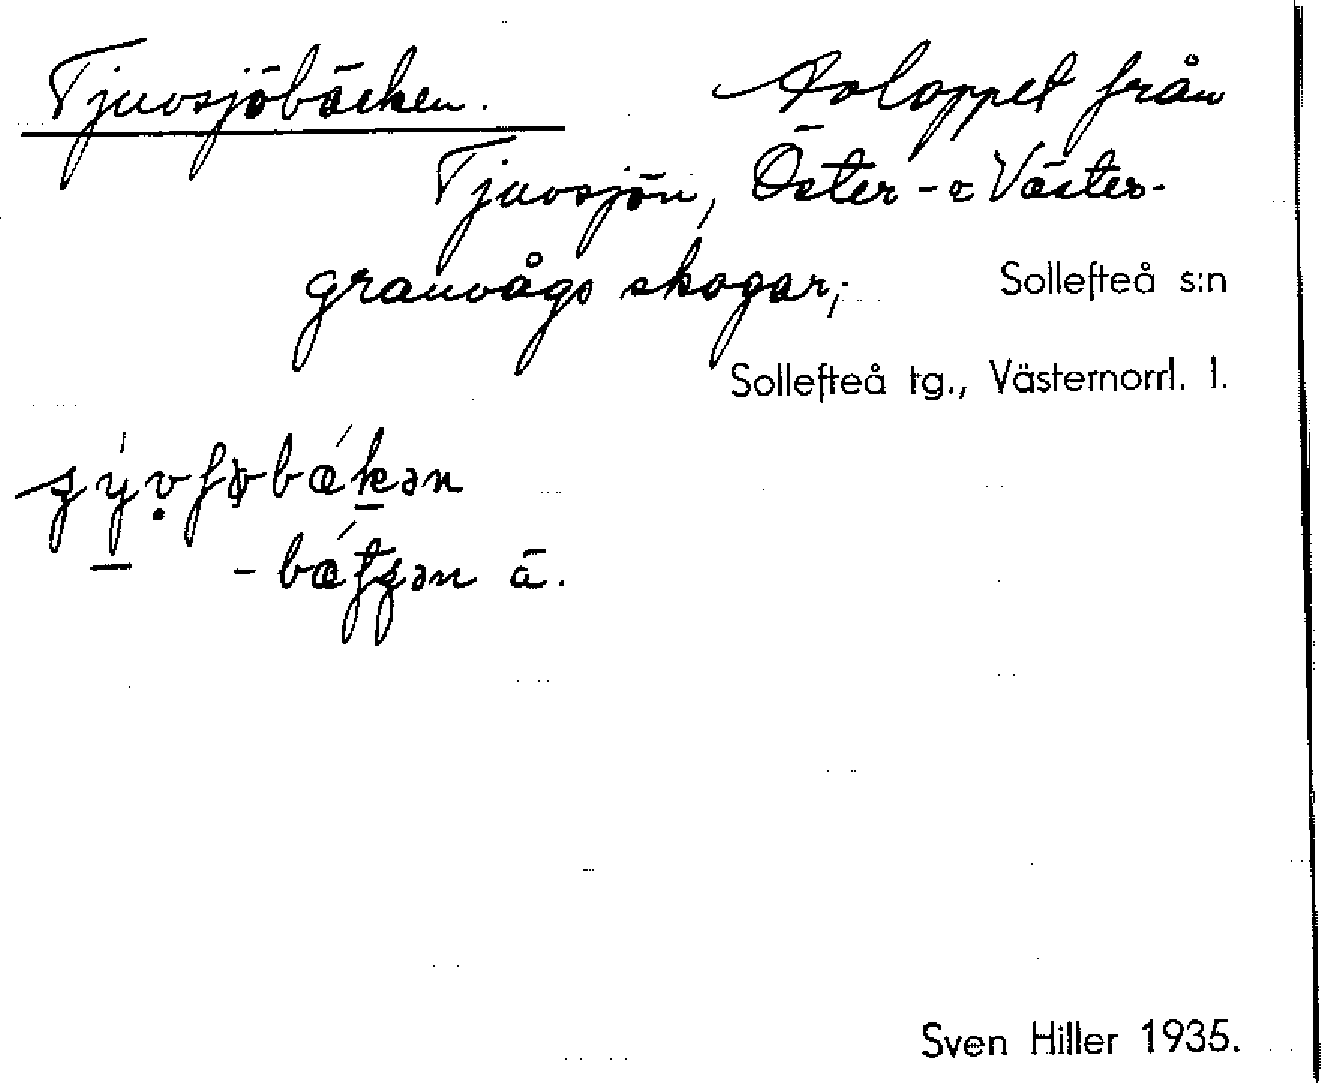 Tjuvsjöbäcken. Avloppet från
Tjuvsjön, Öster- o Väster-
granvågs skogar; Sollefteå s:n
Sollefteå tg., Västernorrl. l.
-bǽtʂən ä.
Sven Hiller 1935.